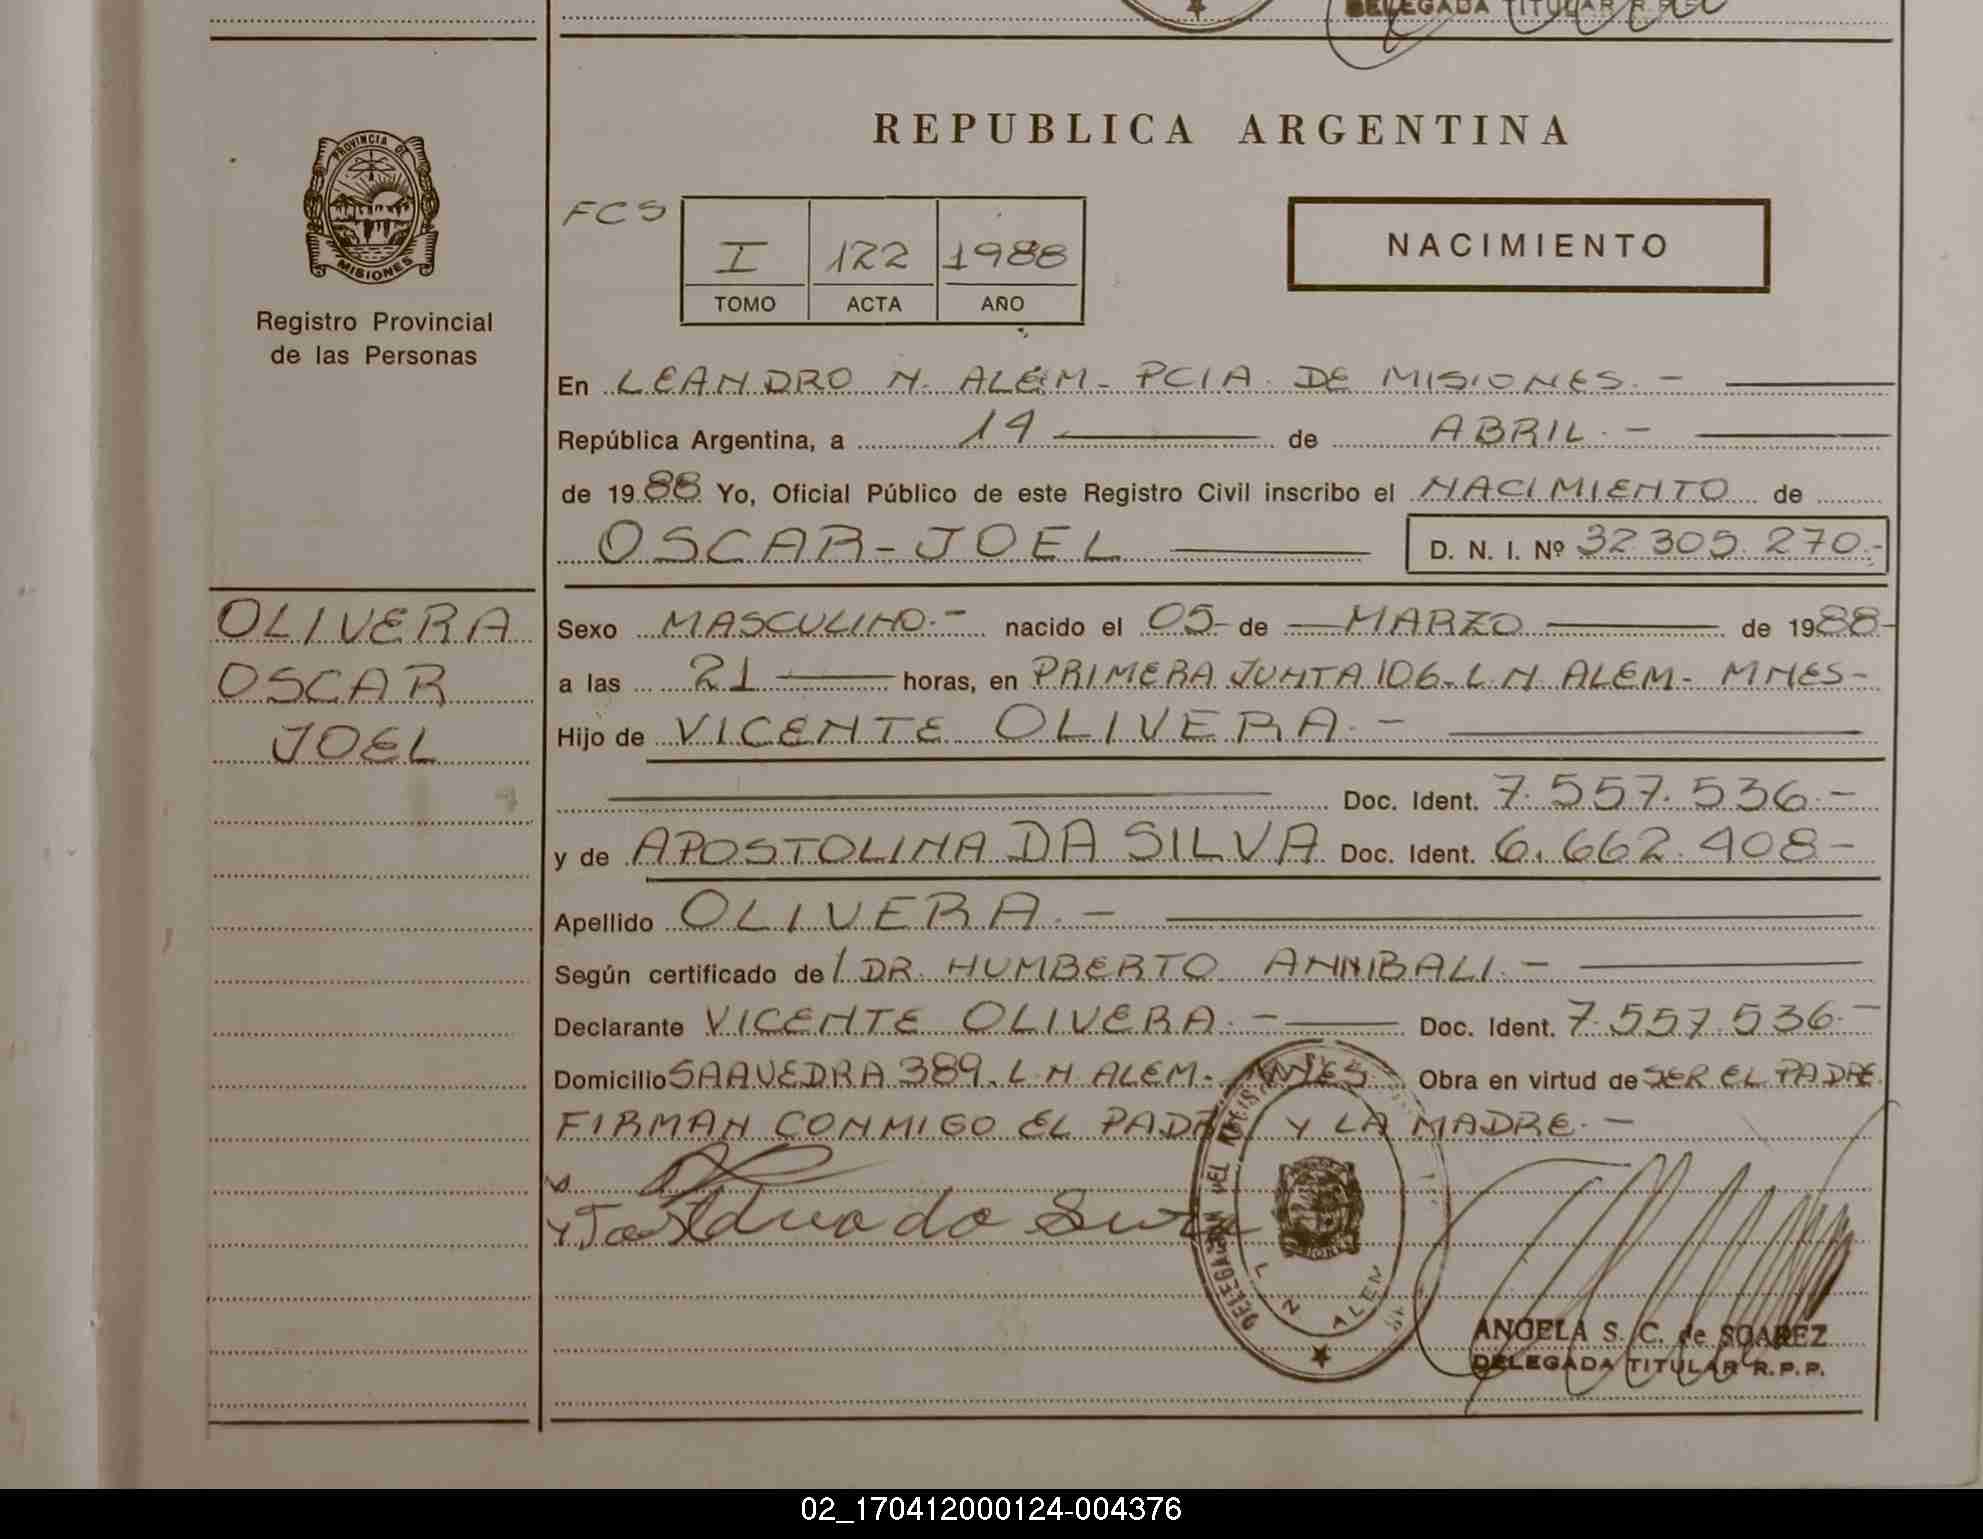 DELEGADA TITULAR R.P.P.
REPUBLICA ARGENTINA
PROVINCIA DE
MISIONES
Registro Provincial
de las Personas
FCS
I 122 1988
TOMO ACTA AÑO
NACIMIENTO
En LEANDRO N. ALEM - PCIA. DE MISIONES. -
República Argentina, a 14 de ABRIL. -
de 1988 Yo, Oficial Público de este Registro Civil inscribo el NACIMIENTO de
OSCAR - JOEL D. N. I. Nº 32 305. 270.-
OLIVERA
OSCAR
JOEL
Sexo MASCULINO.- nacido el 05 de MARZO de 1988-
a las 21 horas, en PRIMERA JUNTA 106 - L N ALEM - MNES -
Hijo de VICENTE OLIVERA. -
Doc. Ident. 7. 557. 536. -
y de APOSTOLINA DA SILVA Doc. Ident. 6. 662. 408 -
Apellido OLIVERA. -
Según certificado de DR. HUMBERTO ANNIBALI. -
Declarante VICENTE OLIVERA. - Doc. Ident. 7. 557. 536. -
Domicilio SAAVEDRA 389. L N ALEM. MNES Obra en virtud de SER EL PADRE.
FIRMAN CONMIGO EL PADRE Y LA MADRE. -
L N ALEM
MISIONES
ANGELA S. C. de SUAREZ
DELEGADA TITULAR R.P.P.
02_170412000124-004376